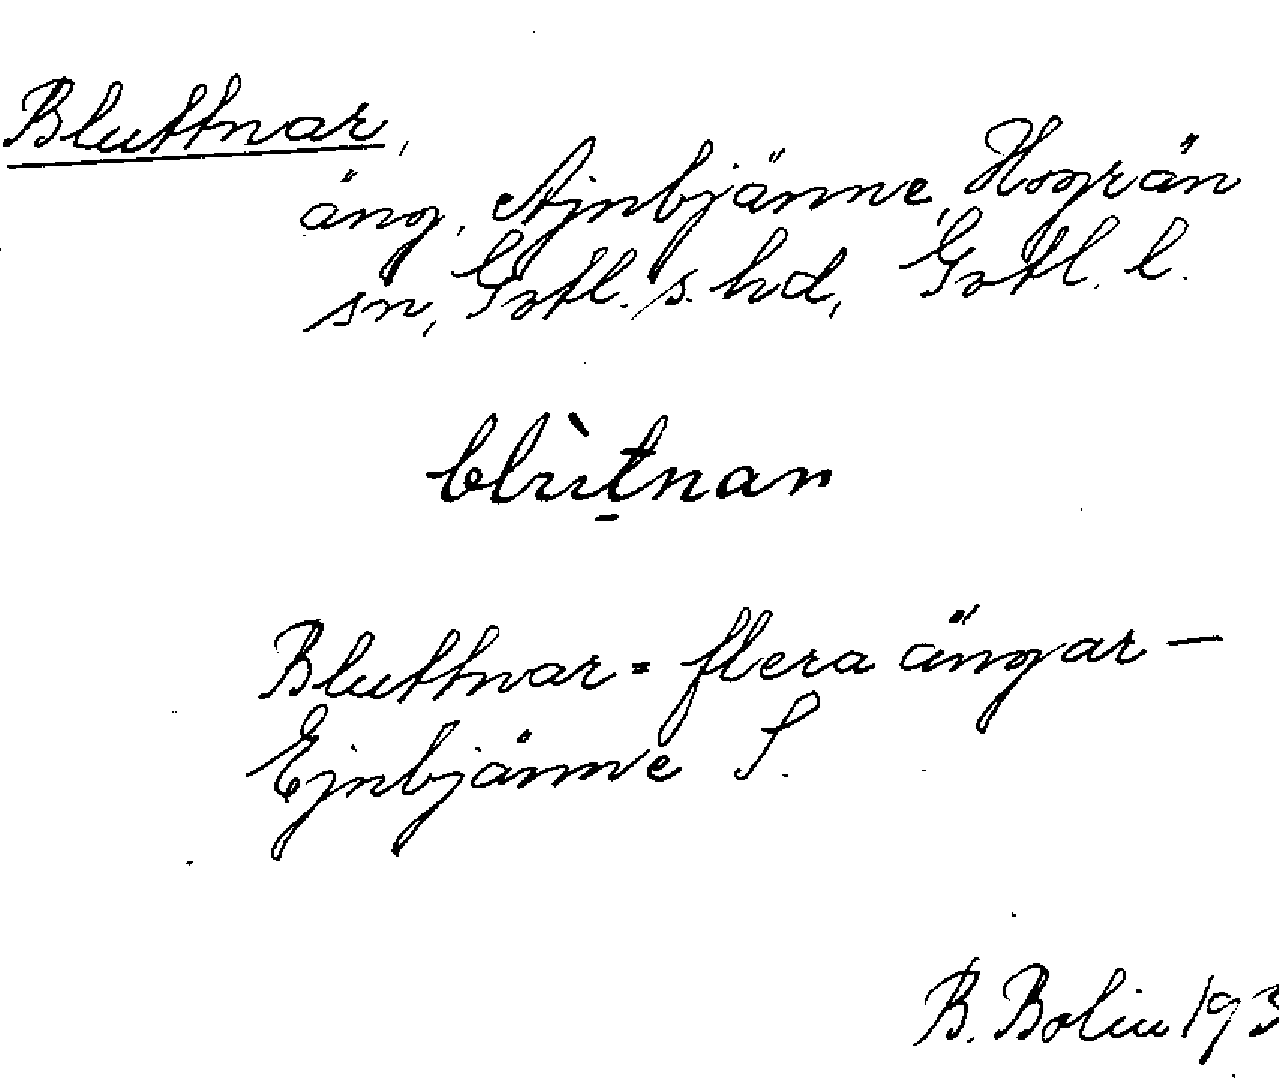 Bluttnar,
äng, Ajnbjänne, Hogrän
sn, Gotl. s. hd, Gotl. l.
blùt̠nar
Bluttnar = flera ängar —
Ejnbjänne S.
B. Bolin 193